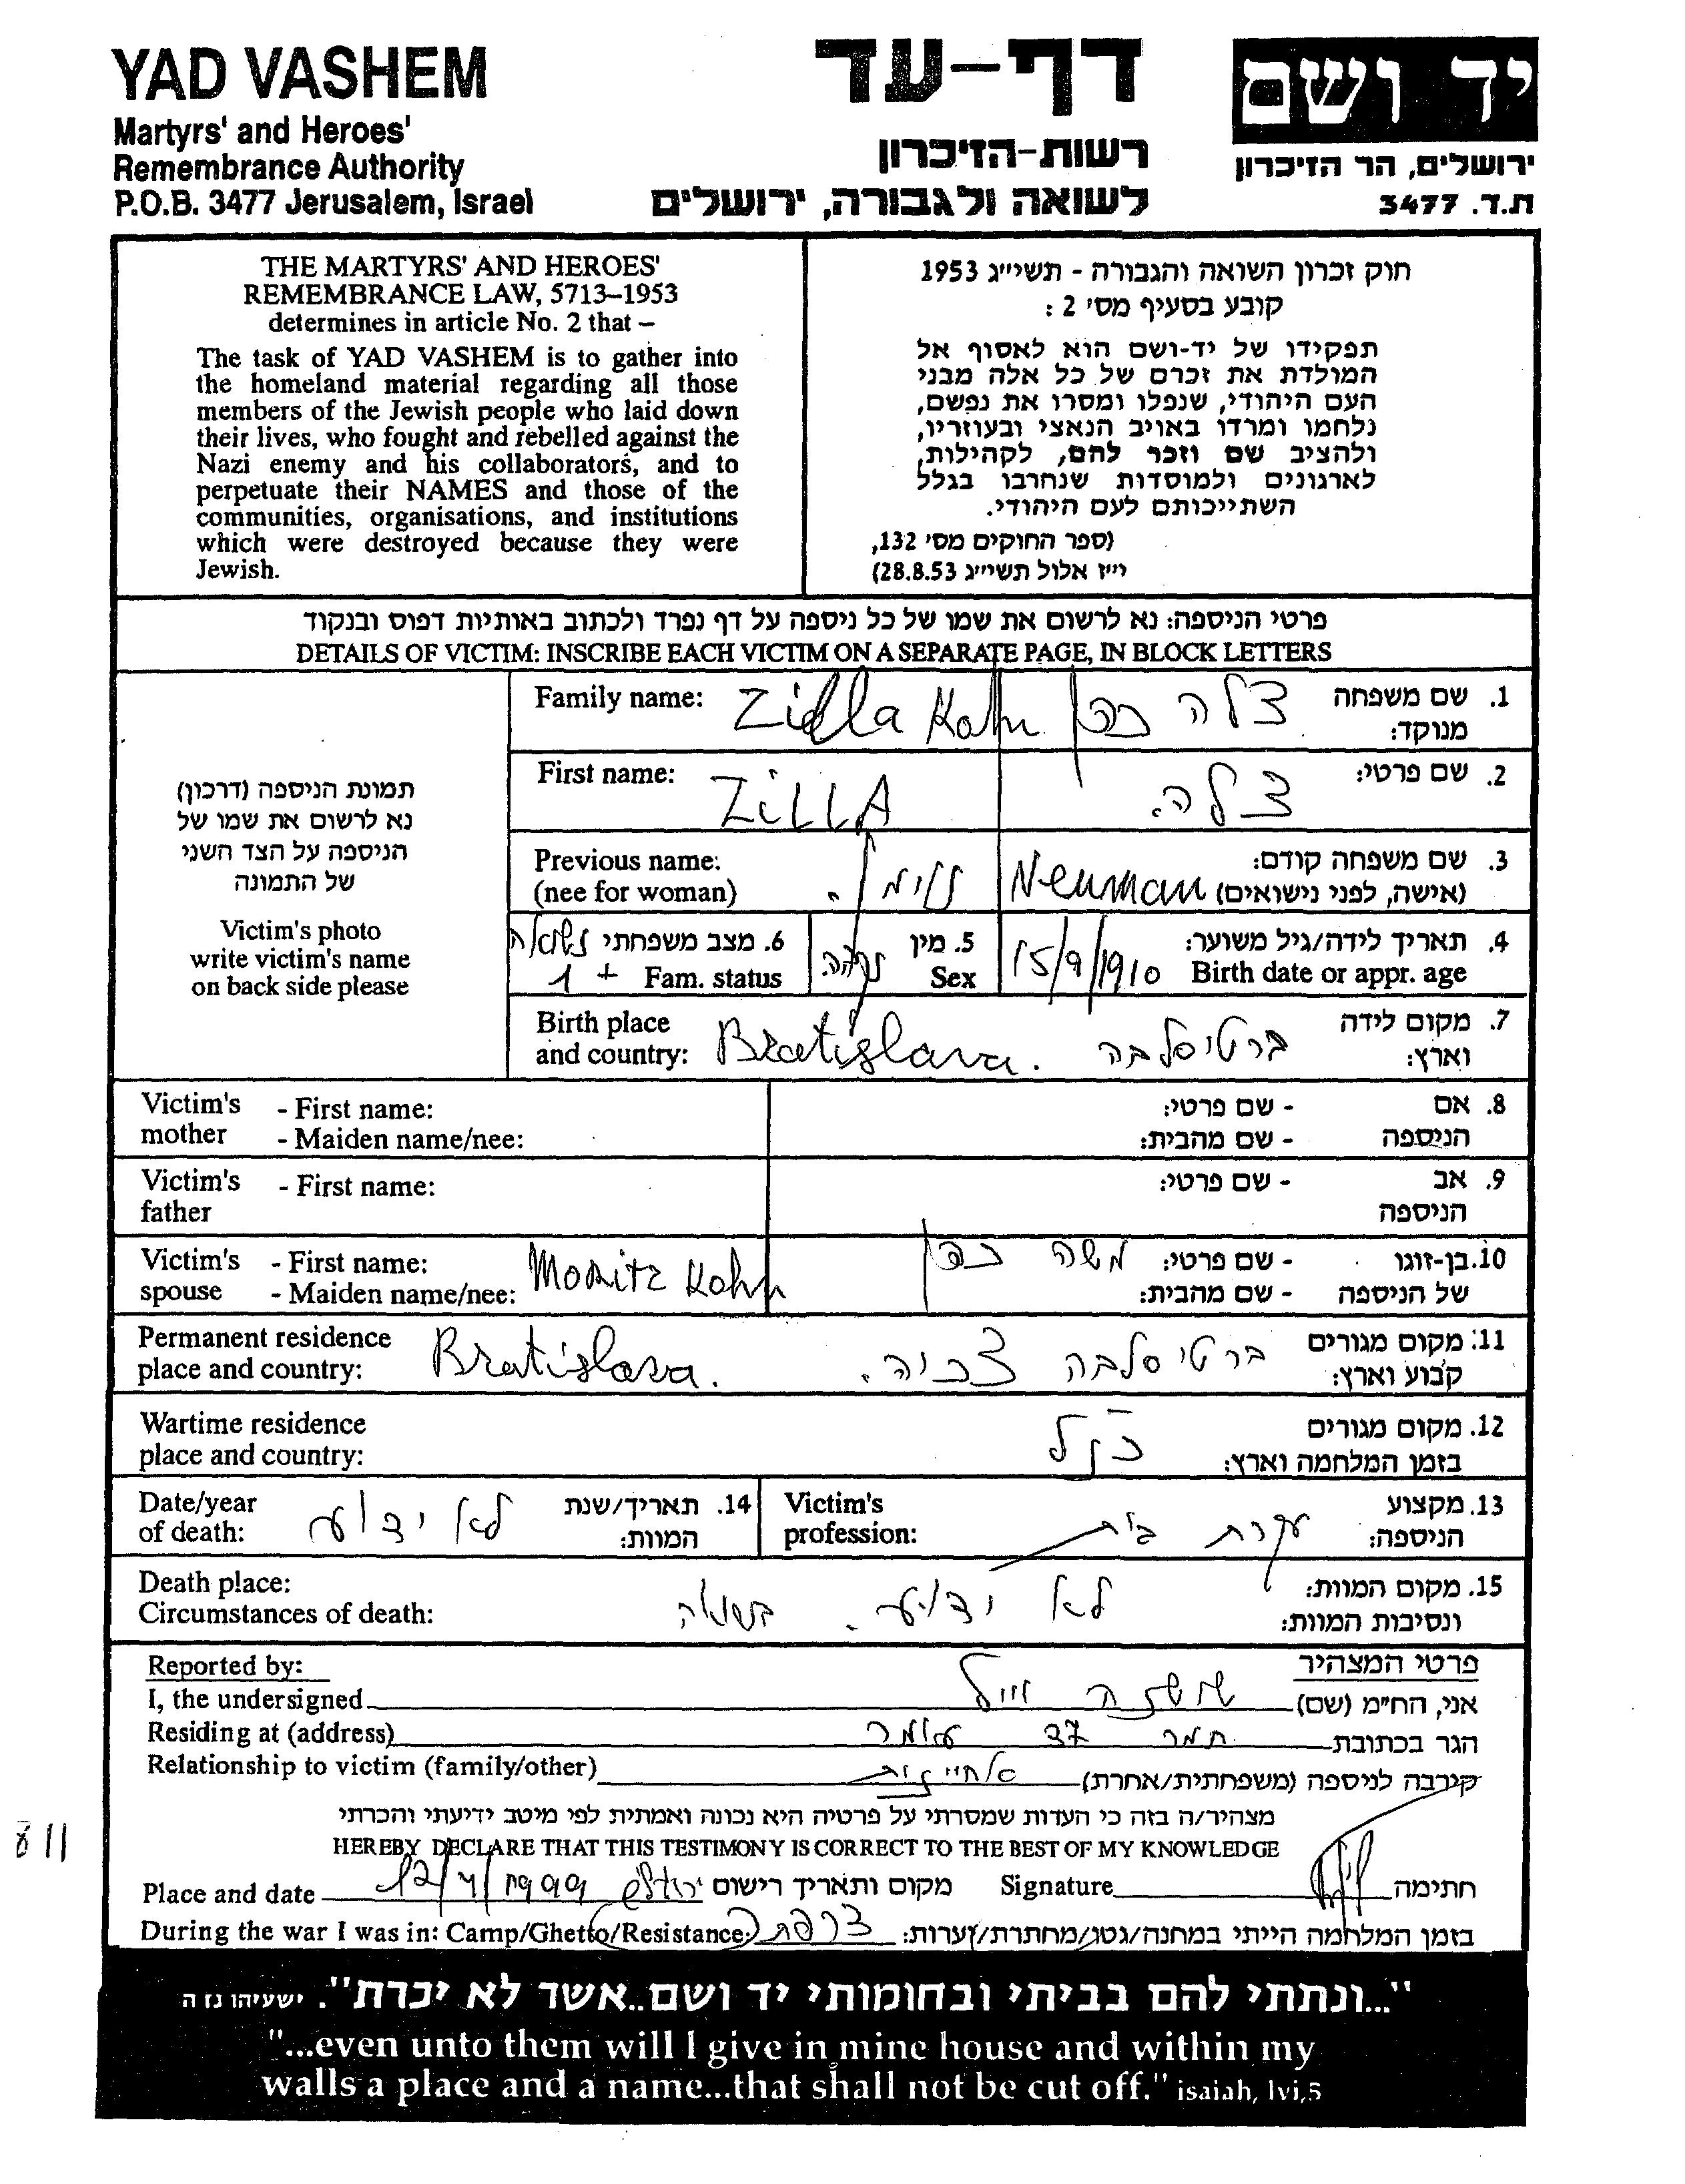 YAD VASHEM
Martyrs' and Heroes'
Remembrance Authority
P.O.B. 3477 Jerusalem, Israel
דף-עד
רשות-הזיכרון
לשואה ולגבורה, ירושלים
יד ושם
ירושלים, הר הזיכרון
ת.ד. 3477
THE MARTYRS' AND HEROES'
REMEMBRANCE LAW, 5713–1953
determines in article No. 2 that –
The task of YAD VASHEM is to gather into
the homeland material regarding all those
members of the Jewish people who laid down
their lives, who fought and rebelled against the
Nazi enemy and his collaborators, and to
perpetuate their NAMES and those of the
communities, organisations, and institutions
which were destroyed because they were
Jewish.
חוק זכרון השואה והגבורה - תשי״ג 1953
קובע בסעיף מס' 2 :
תפקידו של יד-ושם הוא לאסוף אל
המולדת את זכרם של כל אלה מבני
העם היהודי, שנפלו ומסרו את נפשם,
נלחמו ומרדו באויב הנאצי ובעוזריו,
ולהציב שם וזכר להם, לקהילות,
לארגונים ולמוסדות שנחרבו בגלל
השתייכותם לעם היהודי.
(ספר החוקים מס' 132,
י״ז אלול תשי״ג 28.8.53)
פרטי הניספה: נא לרשום את שמו של כל ניספה על דף נפרד ולכתוב באותיות דפוס ובנקוד
DETAILS OF VICTIM: INSCRIBE EACH VICTIM ON A SEPARATE PAGE, IN BLOCK LETTERS
תמונת הניספה (דרכון)
נא לרשום את שמו של
הניספה על הצד השני
של התמונה
Victim's photo
write victim's name
on back side please
Family name: Zidla Kohn צלה כהן 1. שם משפחה
מנוקד:
First name: ZiLLA צלה. 2. שם פרטי:
Previous name: 3. שם משפחה קודם:
(nee for woman) נוימן. Neuman (אישה, לפני נישואים)
6. מצב משפחתי נשואה 5. מין נקבה 4. תאריך לידה/גיל משוער:
1 + Fam. status Sex 15/9/1910 Birth date or appr. age
Birth place Bratislava. ברטיסלבה 7. מקום לידה
and country: וארץ:
Victim's - First name: - שם פרטי: 8. אם
mother - Maiden name/nee: - שם מהבית: הניספה
Victim's - First name: - שם פרטי: 9. אב
father הניספה
Victim's - First name: Moritz Kohn משה כהן - שם פרטי: 10. בן-זוגו
spouse - Maiden name/nee: - שם מהבית: של הניספה
Permanent residence Bratislava. ברטיסלבה צכיה. 11. מקום מגורים
place and country: קבוע וארץ:
Wartime residence כנ״ל 12. מקום מגורים
place and country: בזמן המלחמה וארץ:
Date/year לא ידוע 14. תאריך/שנת
of death: המוות:
Victim's עקרת בית 13. מקצוע
profession: הניספה:
Death place: 15. מקום המוות:
Circumstances of death: לא ידוע. בשואה ונסיבות המוות:
Reported by: פרטי המצהיר
I, the undersigned שושנה וייל אני, הח״מ (שם)
Residing at (address) תמר 37 עומר הגר בכתובת
Relationship to victim (family/other) אחיינית קירבה לניספה (משפחתית/אחרת)
מצהיר/ה בזה כי העדות שמסרתי על פרטיה היא נכונה ואמתית לפי מיטב ידיעתי והכרתי
HEREBY DECLARE THAT THIS TESTIMONY IS CORRECT TO THE BEST OF MY KNOWLEDGE
Place and date 12/4/1999 מקום ותאריך רישום Signature חתימה
During the war I was in: Camp/Ghetto/Resistance: צרפת בזמן המלחמה הייתי במחנה/גטו/מחתרת/יערות:
811
"...ונתתי להם בביתי ובחומותי יד ושם..אשר לא יכרת". ישעיהו נז ה
"...even unto them will I give in mine house and within my
walls a place and a name...that shall not be cut off." isaiah, lvi,5